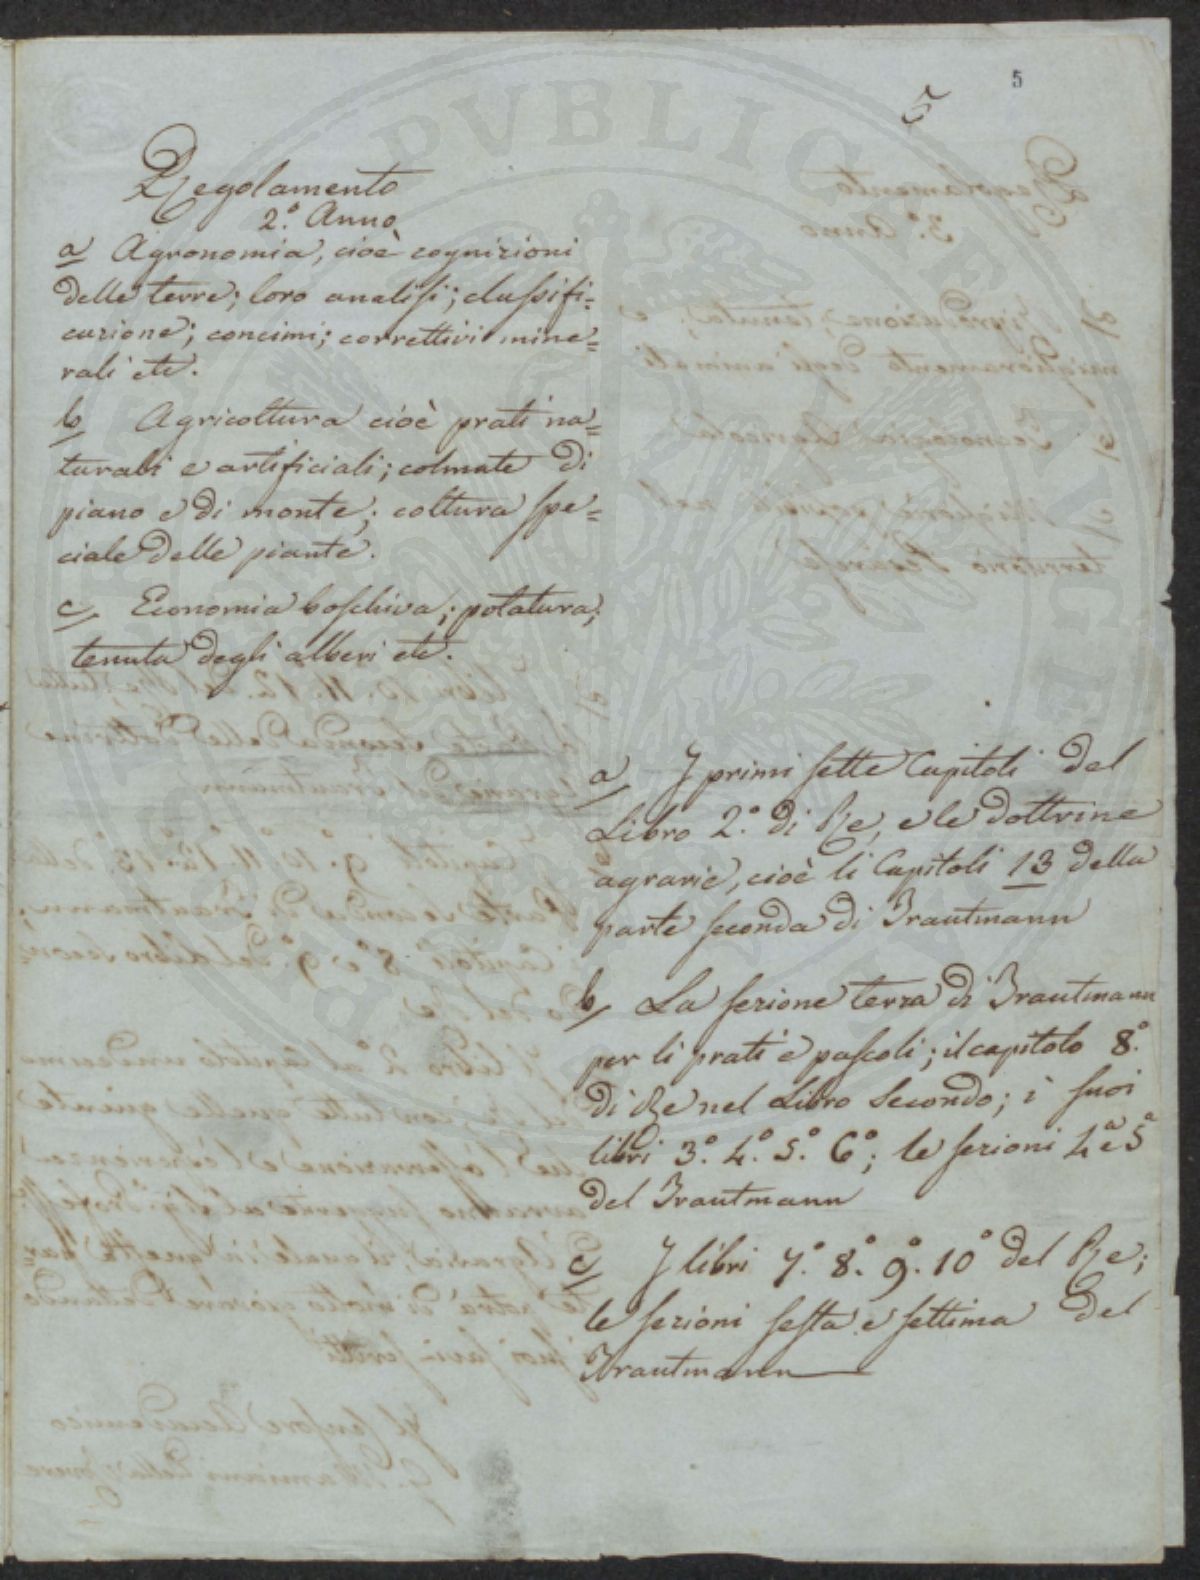 5
5
Regolamento
2.° Anno
a Agronomia, cioè cognizioni
delle terre; loro analisi; classifi=
cazione; concimi; correttivi mine=
rali etc.
b Agricoltura cioè prati na=
turali e artificiali; colmate di
piano e di monte; coltura spe=
ciale delle piante.
c Economia boschiva; potatura;
tenuta degli alberi etc.
a I primi sette Capitoli del
Libro 2.° di Re, e le dottrine
agrarie, cioè li Capitoli 13 della
parte seconda di Trautmann
b La sezione terza di Trautmann
per li prati e pascoli; il capitolo 8.°
di Re nel Libro Secondo; i suoi
libri 3.° 4.° 5.° 6.°; le sezioni 4.a e 5.a
del Trautmann
c I libri 7.° 8.° 9.° 10.° del Re;
le sezioni sesta e settima del
Trautmann